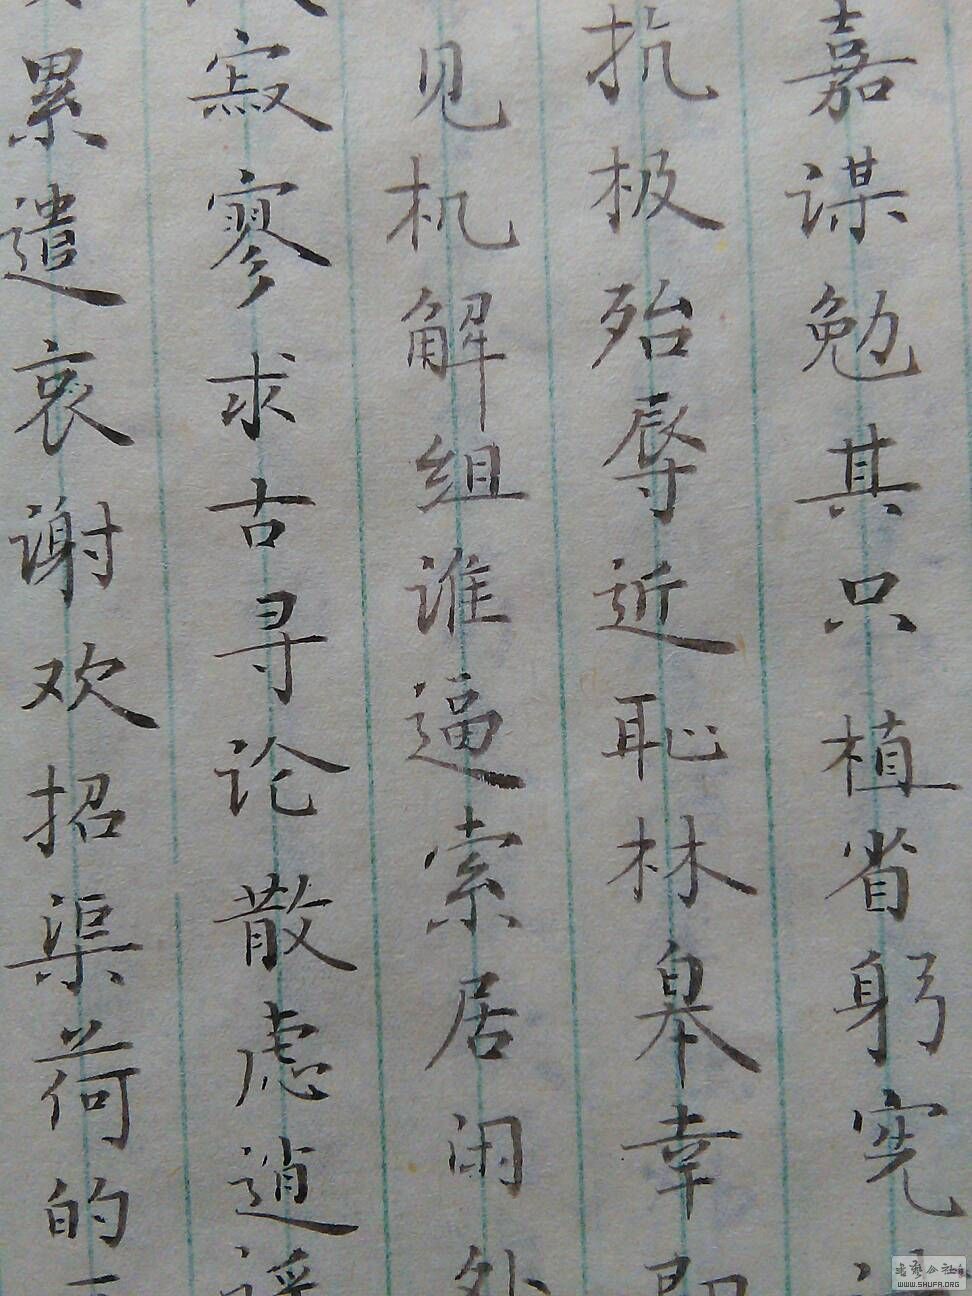 嘉谋勉其只植省躬宪
抗极殆辱近耻林皋幸即
见机解组谁逼索居闲处
寂寥求古寻论散虑逍遥
累遣哀谢欢招渠荷的
WWW.SHUFA.ORG